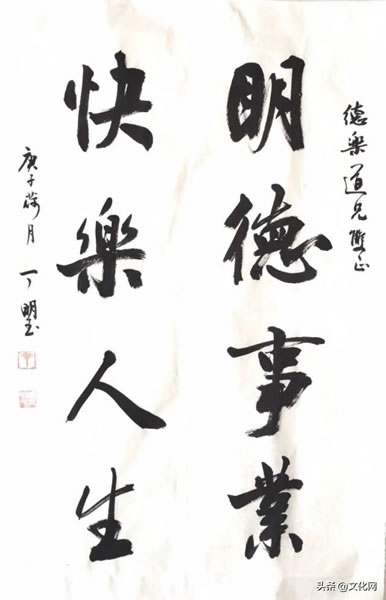 德樂道兄雅正
明德事業
快樂人生
庚子荷月 丁明玉
头条@文化网